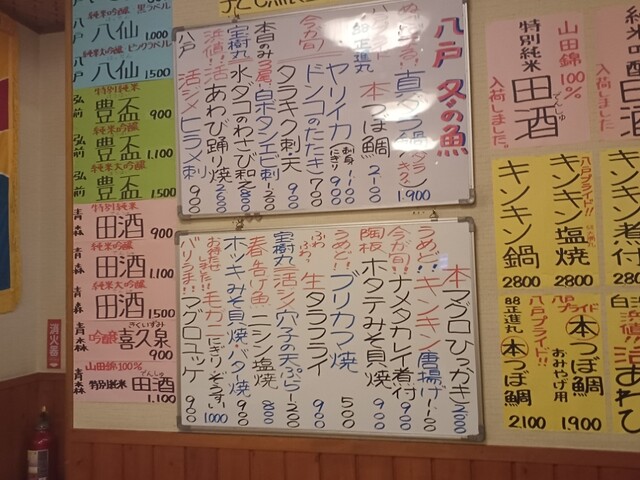 八戸 冬の魚
真ダラ鍋
1.900
88正進丸
本つぼ鯛
2100
今が旬
ヤリイカ 刺身 にぎり
1100
ドンコのたたき
700
タラキク刺・天
900
本日のみ
白ボタンエビ刺
1200
宝樹丸
水ダコのわさび和
800
活あわび踊り焼
2600
八戸
活〆ヒラメ刺
900
本マグロひっかき
2000
うめど!!
キンキン唐揚げ
1100
今が旬!
ナメタカレイ煮付
900
陶板
ホタテみそ貝焼
900
うめど!!
ブリカマ焼
500
ふわふわ?
生タラフライ
900
宝樹丸
活〆穴子の天ぷら
1200
春告げ魚
ニシン塩焼
800
ホッキみそ貝焼・バタ焼
900
お待たせしました!!
毛カニ
1000
バリうま!!
マグロユッケ
900
純米大吟醸 黒ラベル
八戸 八仙
1.000
純米大吟醸 ピンクラベル
八戸 八仙
1500
特別純米
弘前 豊盃
900
純米吟醸
弘前 豊盃
1.100
純米大吟醸
弘前 豊盃
1500
特別純米
青森 田酒
900
純米吟醸
青森 田酒
1.100
純米大吟醸
青森 田酒
1500
きくいずみ
青森 吟醸 喜久泉
900
山田錦100%
でんしゅ
青森 特別純米 田酒
1.100
消火器
山田錦100%
特別純米
田酒
でんしゅ
入荷しました。
入荷しました
キンキン鍋
2800
八戸プライド!!
キンキン塩焼
2800
煮付
2800
88正進丸
八戸プライド!!
本つぼ鯛
2.100
八戸プライド
本つぼ鯛
おみやげ用
1.900
あわび